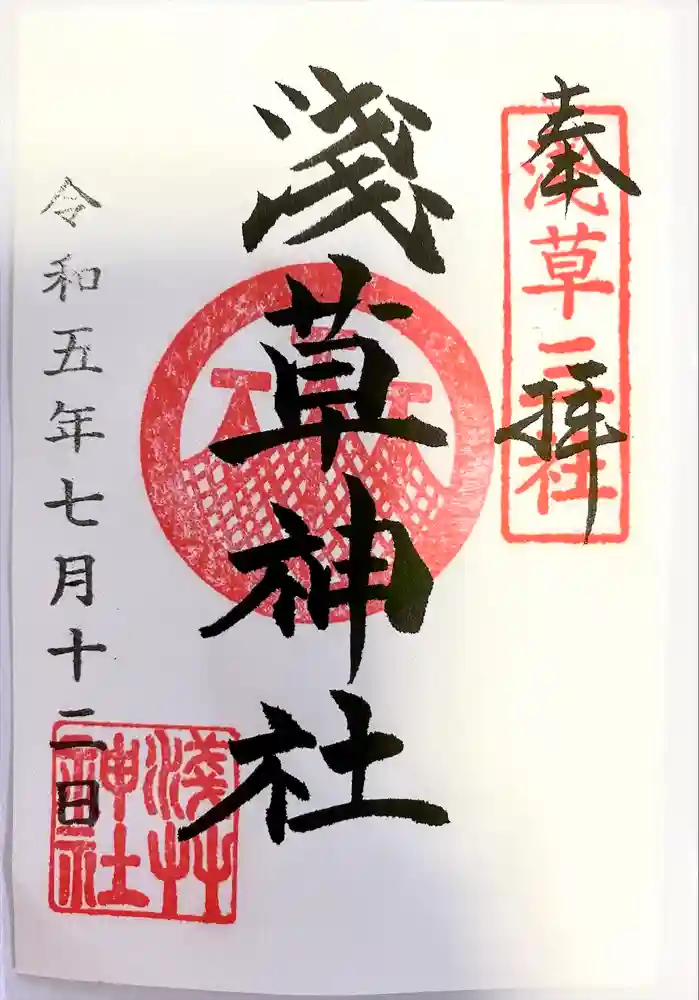 奉拝
淺草三社
淺草神社
令和五年七月十二日
淺草
神社